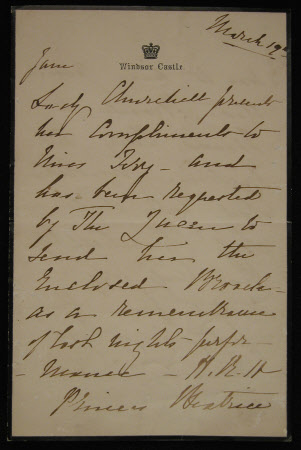 March 19th
Windsor Castle.
Jane
Lady Churchill presents
her Compliments to
Miss Terry - and
has been requested
by The Queen to
send her the
Enclosed Brooch -
as a remembrance
of last nights perfor
- mance - H. R. H
Princess Beatrice